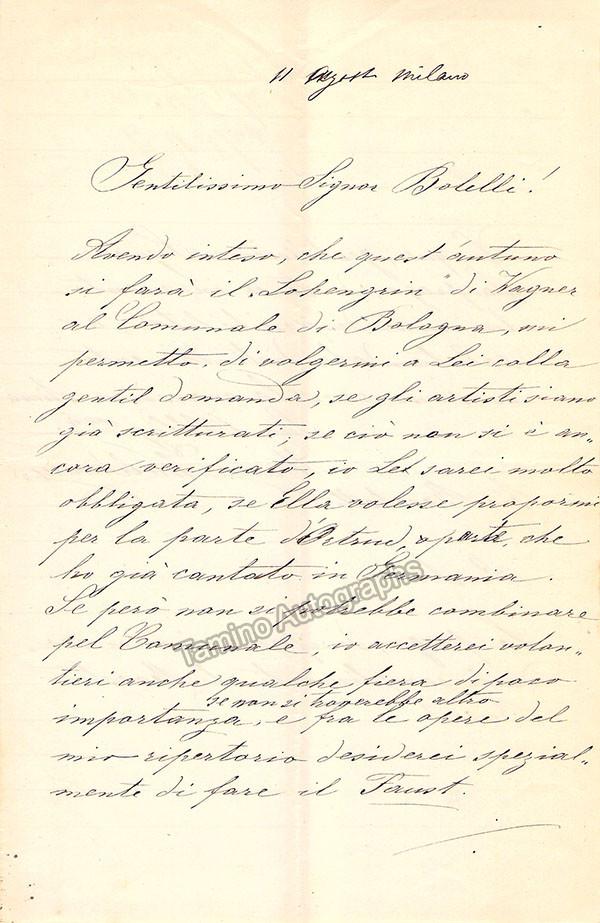 11 Agost Milano
Gentilissimo Signor Bolelli!
Avendo inteso, che quest'autuno
si farà il „Lohengrin" di Wagner
al Comunale di Bologna, mi
permetto, di volgermi a Lei colla
gentil domanda, se gli artisti siano
già scritturati; se ciò non si è an„
cora verificato, io Le sarei molto
obbligata, se Ella volesse propormi
per la parte d'Ortrud, parte, che
ho già cantato in Germania.
Se però non si potrebbe combinare
pel Comunale, io accetterei volon„
tieri anche qualche fiera di poco
se non si troverebbe altro
importanza, e fra le opere del
mio ripertorio desiderei spezial„
mente di fare il Faust.
Tamino Autographs